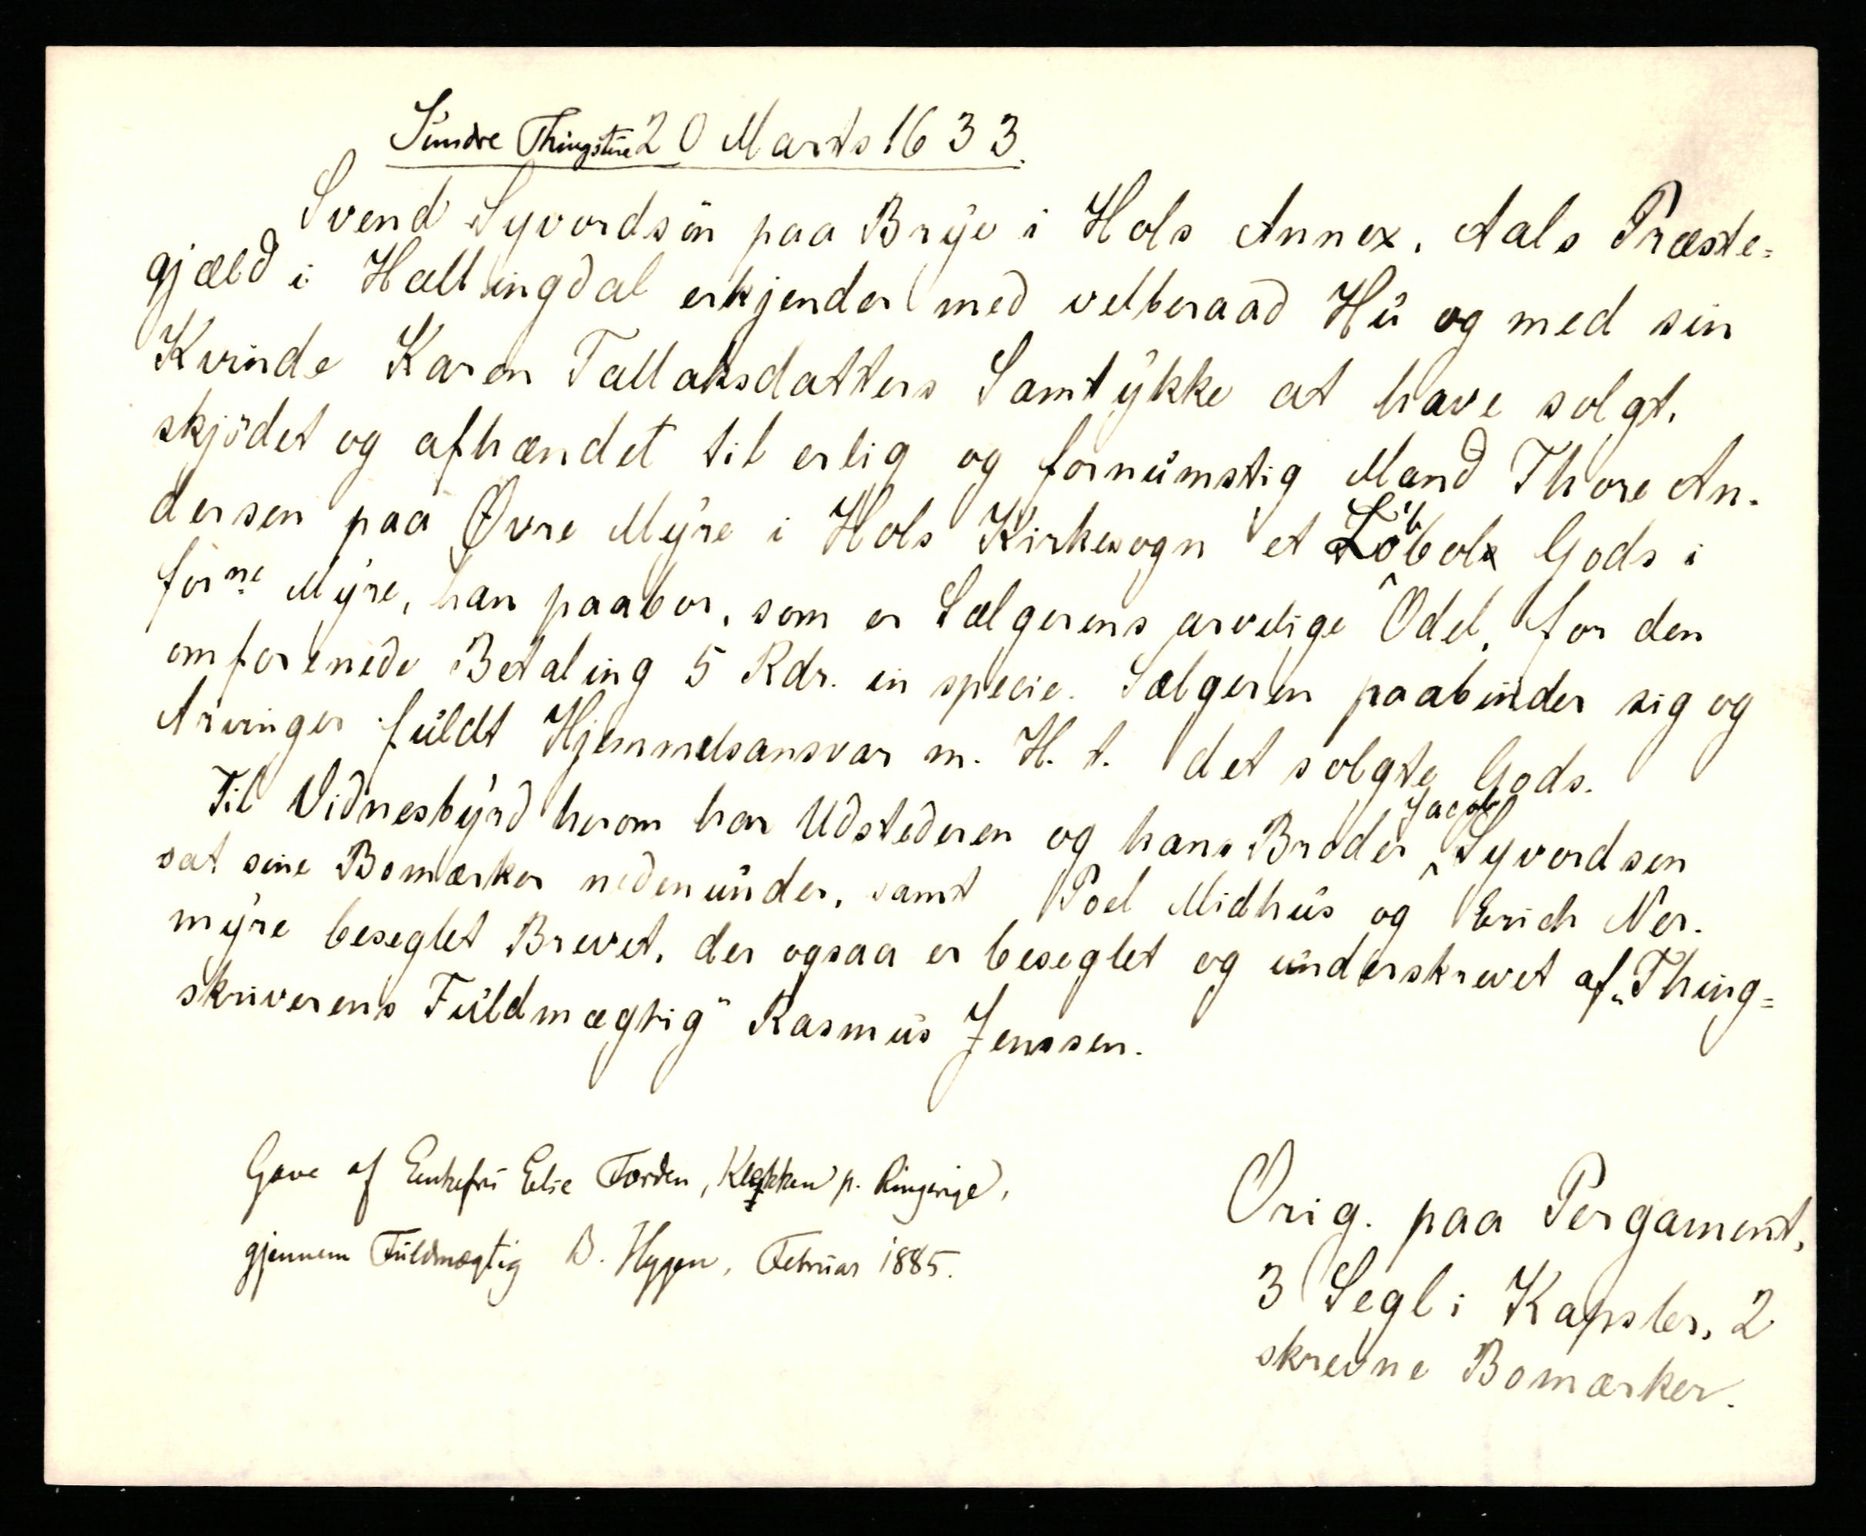 Sundre Thingstue 20 Marts 1633.
Svend Syvordsön paa Brye i Hols Annex, Aals Præste=
gjæld i Hallingdal erkjender med velberaad Hu og med sin
Kvinde Karen Tallaksdatters Samtykke at have solgt,
skjödet og afhændet til erlig og fornumstig Mand Thore An-
dersen paa Øvre Myre i Hols Kirkesogn et Löbol Gods i
forne Myre, han paabor, som er Sælgerens arvelige Odel, for den
omforenede Betaling 5 Rdr. in specie. Sælgeren paabinder sig og
Arvinger fuldt Hjemmelsansvar m. H. t. det solgte Gods.
Til Vidnesbyrd herom har Udstederen og hans Broder Jacob Syvordsen
sat sine Bomærker nedenunder, samt Poel Midhus og Erich Ner-
myre beseglet Brevet, der ogsaa er beseglet og underskrevet af "Thing=
skriverens Fuldmægtig" Rasmus Jenssen.
Gave af Enkefru Else Torden, Klækken p. Ringerige,
gjennem Fuldmægtig B. Hygen, Februar 1885.
Orig. paa Pergament,
3 Segl i Kapsler, 2
skrevne Bomærker.